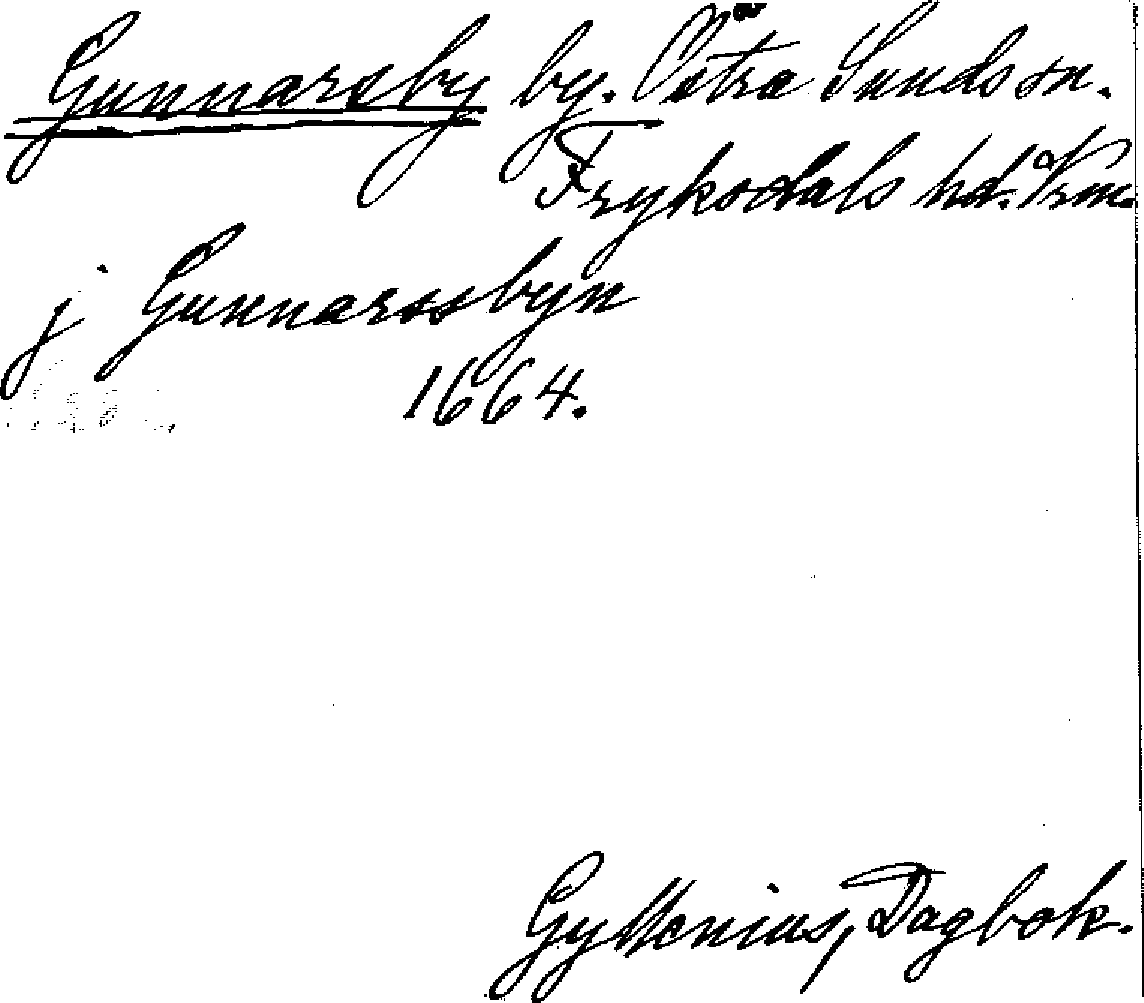 Gunnarsby by. Östra Sunds sn.
Fryksdals hd. Vrm.
j Gunnarssbyn
1664.
Gyllenius, Dagbok.